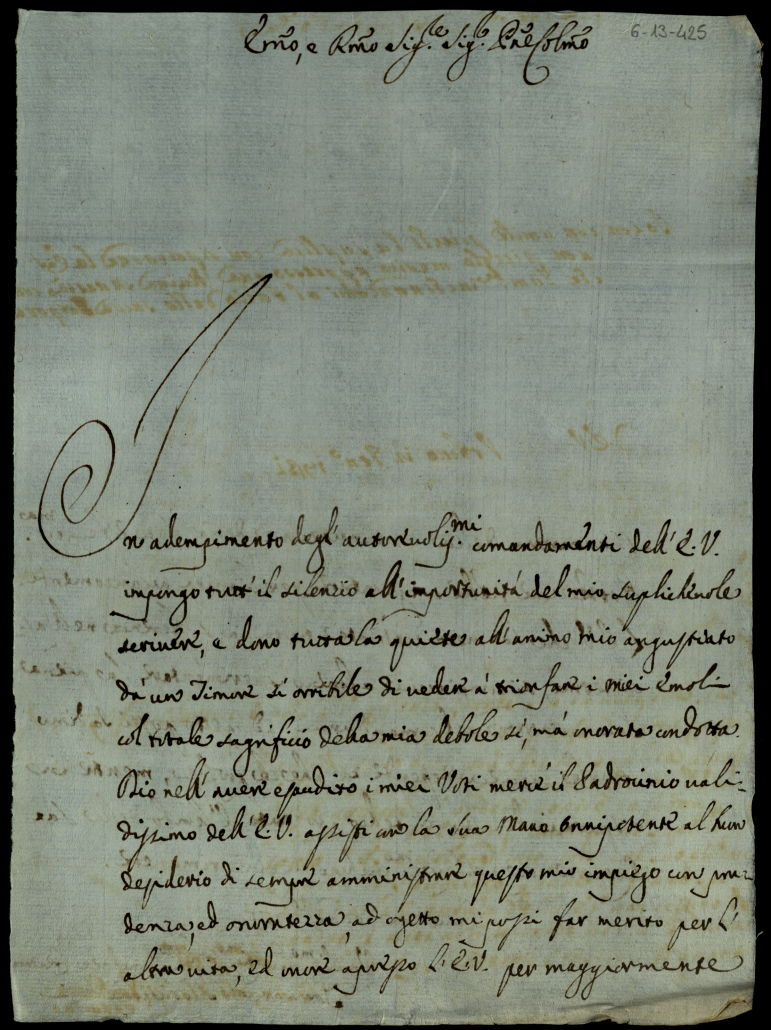 6-13-425
Emo, e Rmo Sig.re Sig.re Pne Colmo
In adempimento degl' autorevoliss.mi comandamenti dell' E.V.
impongo tutt' il silenzio all' importunitá del mio suplichevole
scrivere, e dono tutta la quiete all' animo mio angustiato
da' un Timore sí orribile di veder á trionfare i miei Emoli
col totale sagrificio della mia debole sí, má onorata condotta.
Dio nell' avere esaudito i miei Voti mercé il Padrocinio vali=
dissimo dell' E.V. assisti con la sua Mano onnipotente al buon
desiderio di sempre amministrare questo mio impiego con pru=
denza, ed onoratezza, ad ogetto mi possi far merito per l'
altra vita, ed onore apresso l' E.V. per maggiormente